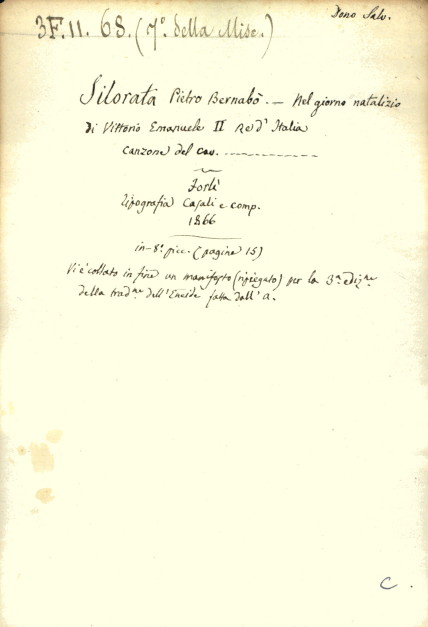 Dono Salv.
3F.11.68. (7º. della Misc.)
Silorata Pietro Bernabò. — Nel giorno natalizio
di Vittorio Emanuele II Re d'Italia
Canzone del cav. ---------------
Forlì
Tipografia Casali e comp.
1866
in-8º. picc. (pagine 15)
Vi è collato in fine un manifesto (ripiegato) per la 3ª. edizne
della tradne dell'Eneide fatta dall'a.
C.